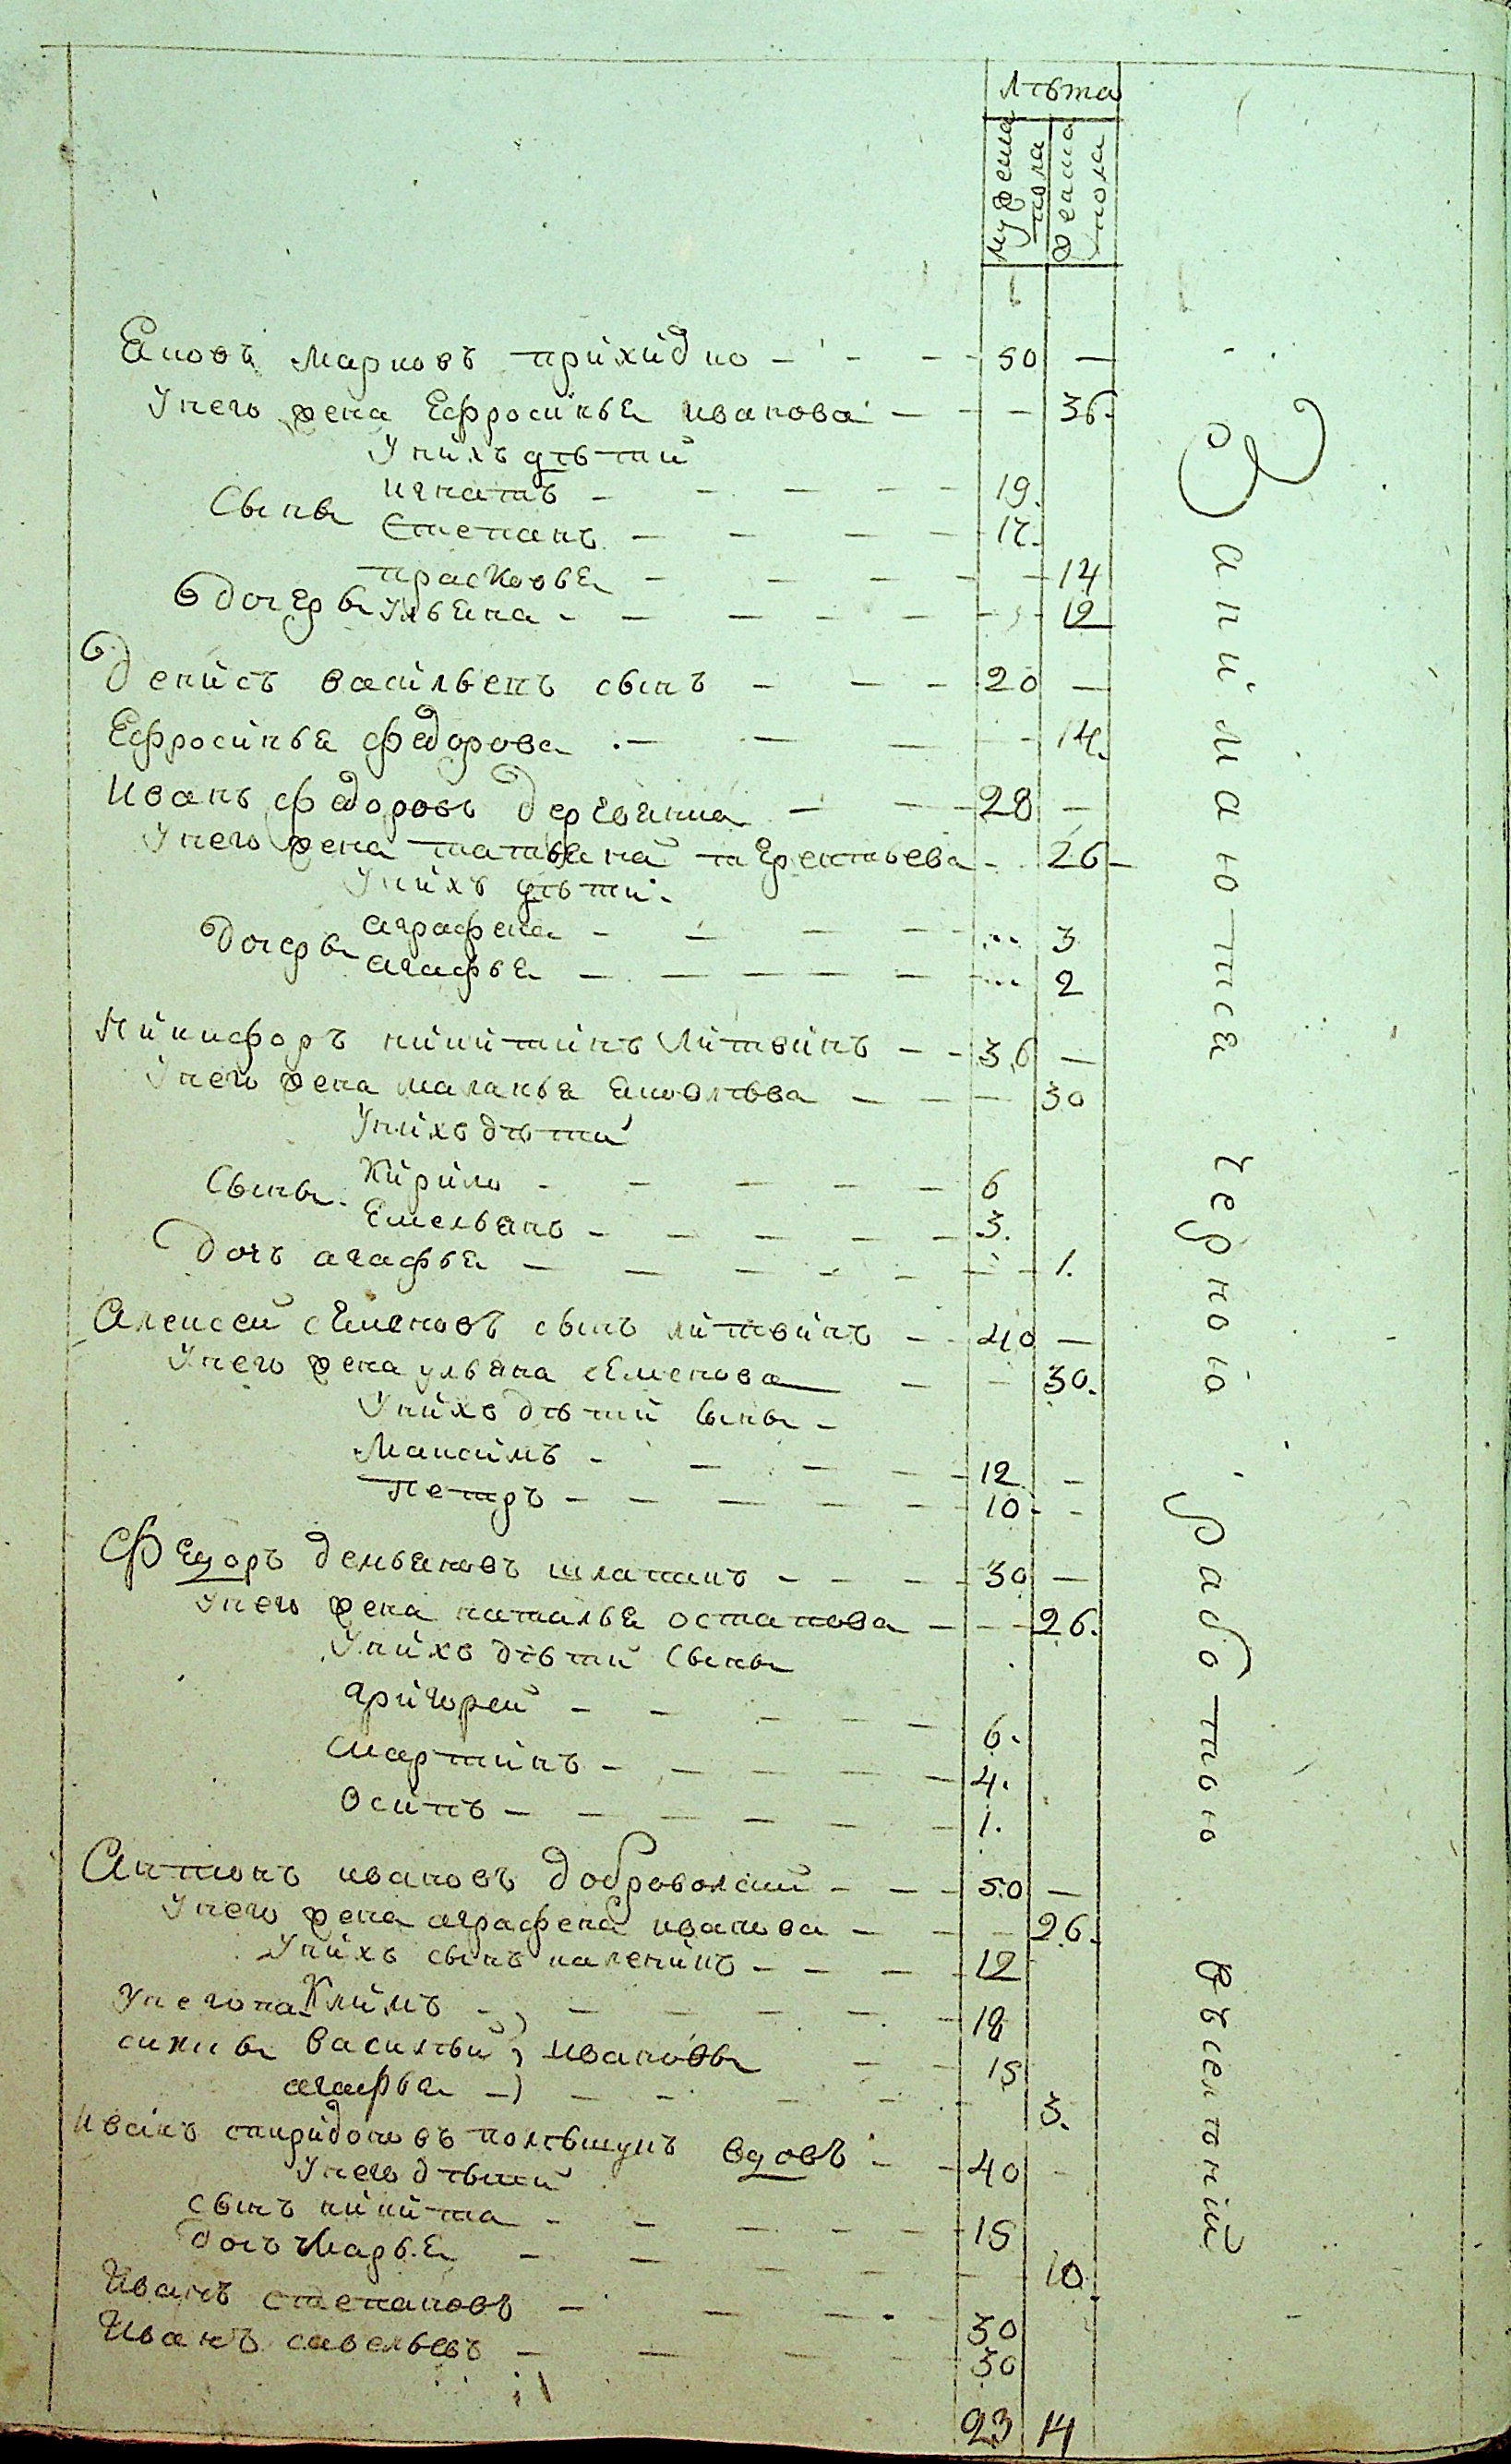 лѣта
мужеска пола
женска пола
Яковъ Марковъ прихидко 50
У него жена Ефросинья иванова 36.
У нихъ дѣтй
Сыны игнатъ 19.
Степанъ 17.
дочеры прасковья 14
Ульяна 12
Денисъ васильевъ сынъ 20
Ефросинья федорова 14.
Иванъ федоровъ деревянка 28
У него жена татьяна терентьева 26
У нихъ дѣти.
дочеры аграфена 3
агафья 2
Никифоръ никитинъ Литвинъ 36
У него жена маланья яковлѣва 30
У нихъ дѣти
Сыны Кирило 6
Емельянъ 3.
дочъ агафья 1.
Алексей семеновъ сынъ литвинъ 40
У него жена ульяна семенова 30.
У нихъ дѣтй сыны
Максимъ 12
Петръ 10
Федоръ демьяновъ шлапакъ 30
У него жена наталья остапова 26.
У нихъ дѣтй сыны
григорей 6.
мартинъ 4.
Осипъ 1.
Антонъ ивановъ доброволский 50
У него жена аграфена иванова 26.
У нихъ сынъ каленикъ 12
У него па Климъ 18
синки василѣй ивановы 15
агафья 3.
Иванъ спиридоновъ полсѣшукъ вдовъ 40
У него дѣтй
сынъ никита 15
дочъ Марья 10
Иванъ степановъ 30
Иванъ савельевъ 30
23 14
Занимаются черною работою в селений